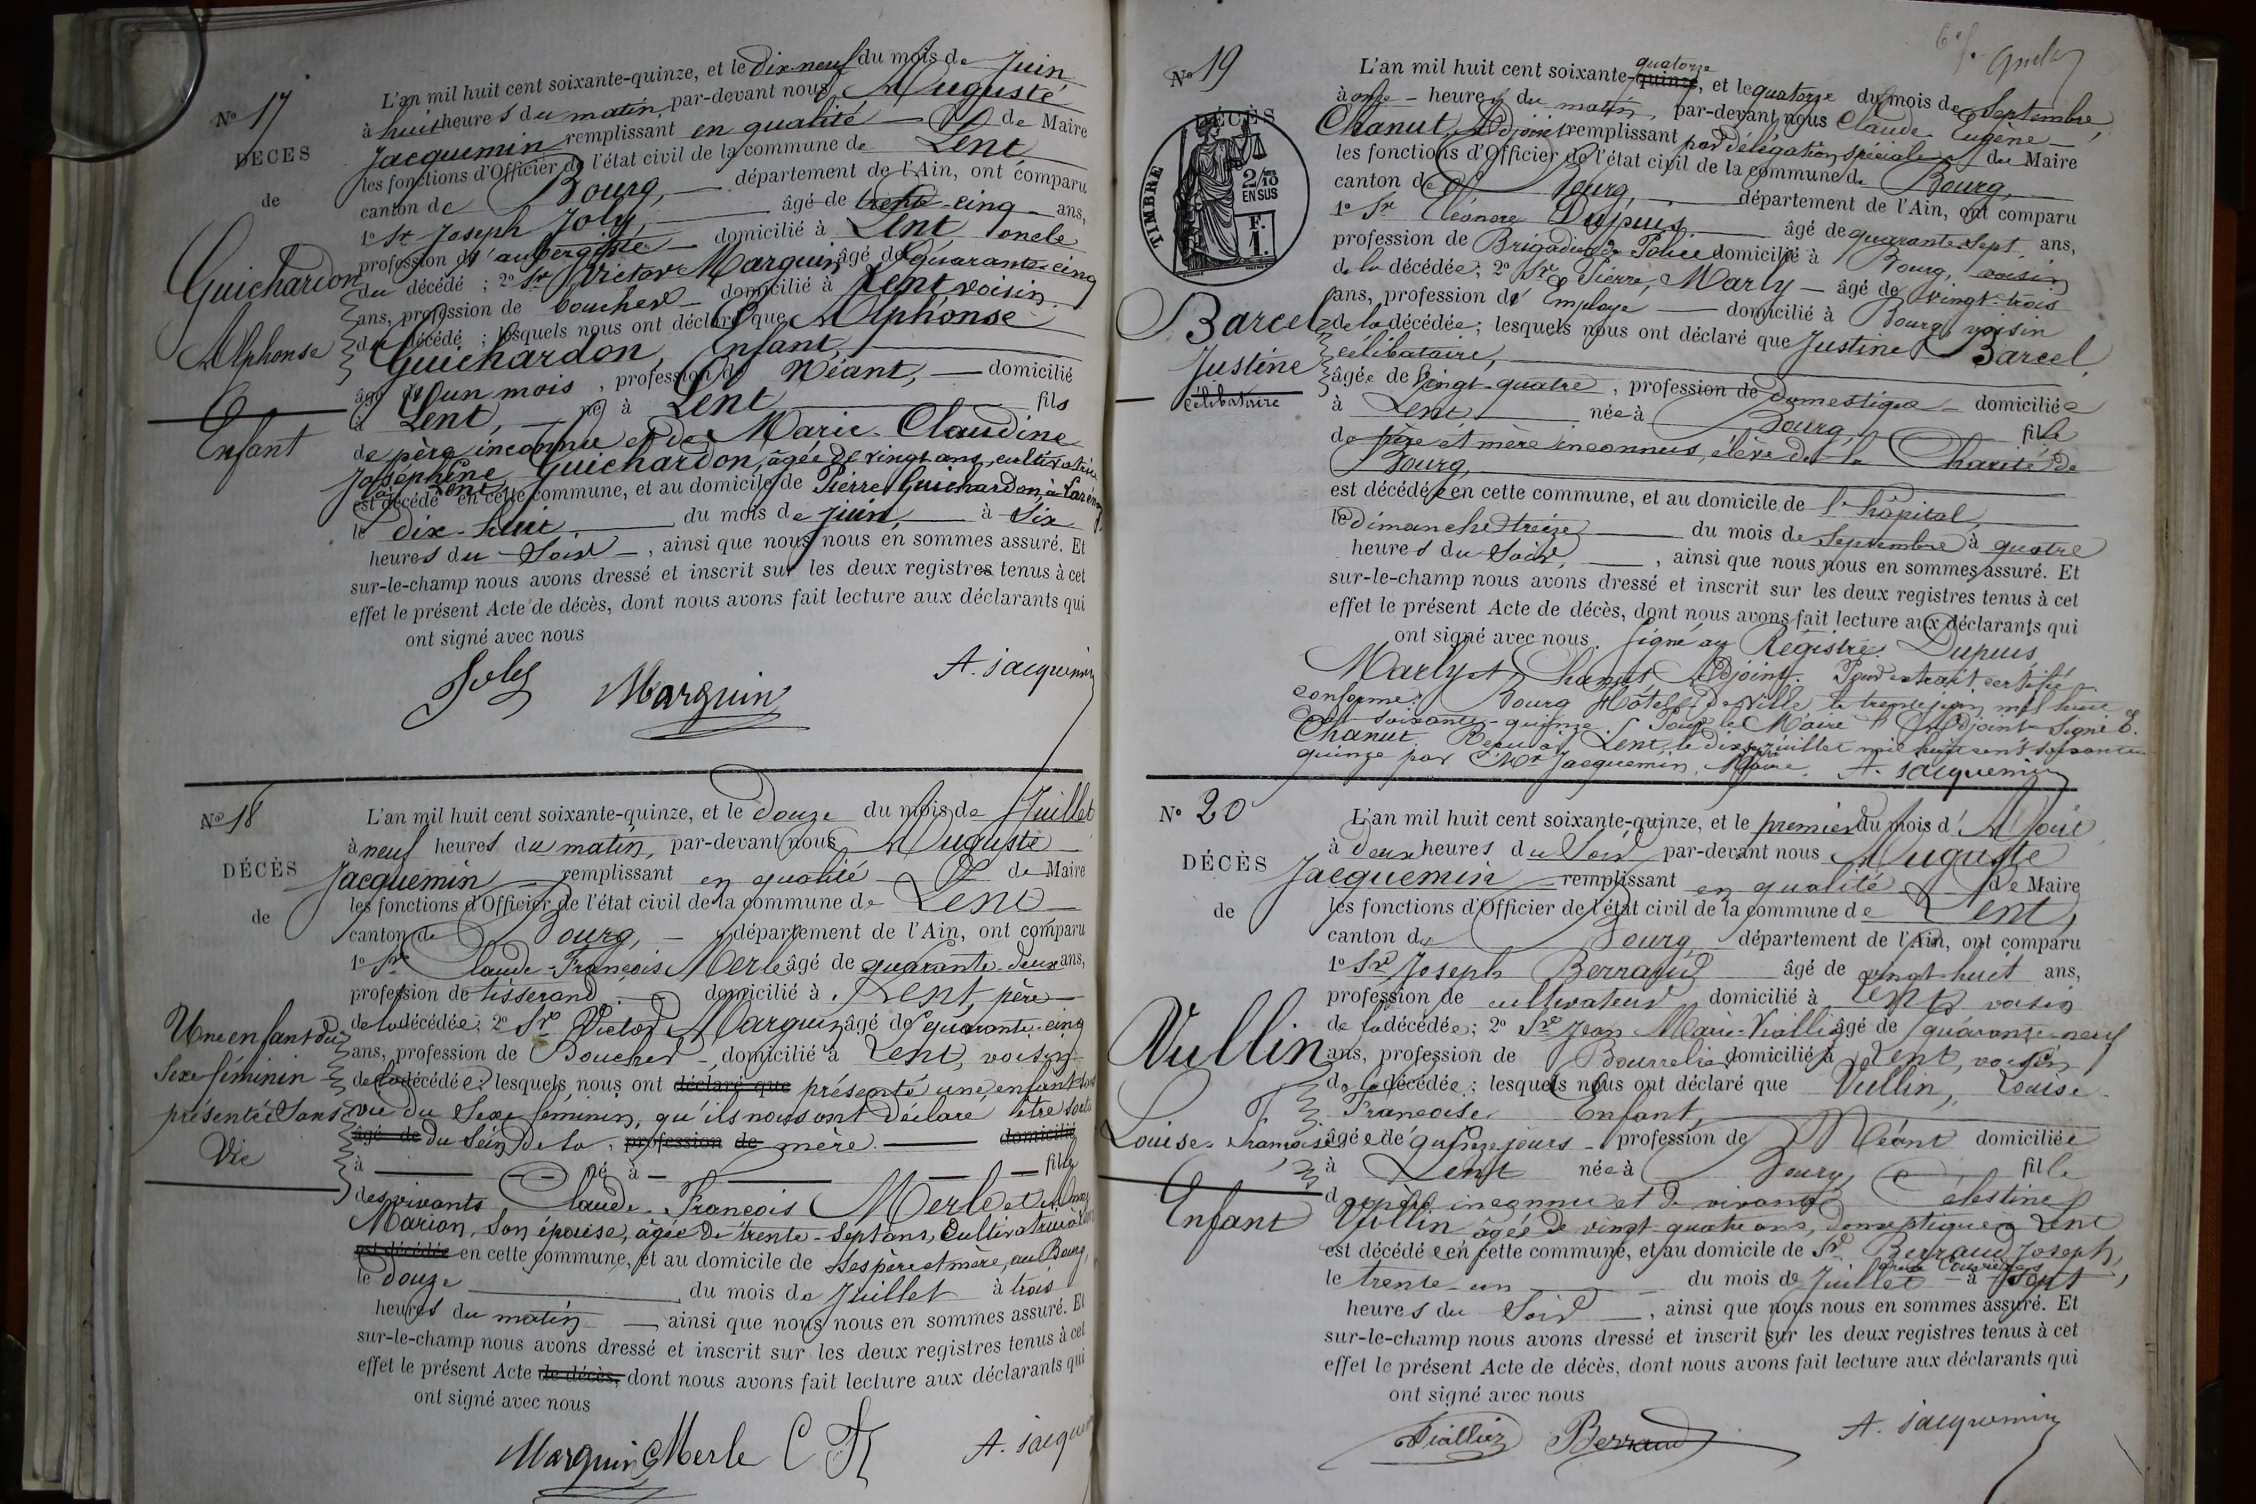 N° 17
DÉCÈS
de
Guichardon
Alphonse
Enfant
L'an mil huit cent soixante-quinze, et le dix-neuf du mois de Juin
à huit heures du matin, par-devant nous Auguste
Jacquemin remplissant en qualité de Maire
les fonctions d'Officier de l'état civil de la commune de Lent
canton de Bourg, département de l'Ain, ont comparu
1° Sr Joseph Joly âgé de trente-cinq ans,
profession d'aubergiste domicilié à Lent oncle
du décédé ; 2° Sr Victor Marguin âgé de quarante-cinq
ans, profession de boucher domicilié à Lent voisin
du décédé ; lesquels nous ont déclaré que Alphonse
Guichardon, Enfant,
âgé d'un mois, profession de Néant, domicilié
à Lent, né à Lent fils
de père inconnu et de Marie Claudine
Joséphine Guichardon, âgée de vingt ans, cultivatrice
à Lent,
est décédé en cette commune, et au domicile de Pierre Guichardon, à
le dix-huit du mois de juin, à six
heures du Soir, ainsi que nous nous en sommes assuré. Et
sur-le-champ nous avons dressé et inscrit sur les deux registres tenus à cet
effet le présent Acte de décès, dont nous avons fait lecture aux déclarants qui
ont signé avec nous
Joly Marguin A. Jacquemin
N° 18
DÉCÈS
de
Une enfant du
Sexe féminin
présentée Sans
Vie
L'an mil huit cent soixante-quinze, et le douze du mois de Juillet
à neuf heures du matin, par-devant nous Auguste
Jacquemin remplissant en qualité de Maire
les fonctions d'Officier de l'état civil de la commune de Lent
canton de Bourg, département de l'Ain, ont comparu
1° Sr Claude-François Merle âgé de quarante-deux ans,
profession de tisserand domicilié à Lent, père
de la décédée; 2° Sr Victor Marguin âgé de quarante-cinq
ans, profession de Boucher, domicilié à Lent, voisin
de la décédée; lesquels nous ont déclaré que présenté une enfant sans
vie du Sexe féminin, qu'ils nous ont déclaré être sortie
âgé de du Sein de la profession de mère domicilié
à né à fille
des vivants Claude-François Merle et de
Marion, son épouse, âgée de trente-sept ans, Cultivatrice à Lent
est décédée en cette commune, et au domicile de ses père et mère, au Bourg,
le douze du mois de Juillet à trois
heures du matin, ainsi que nous nous en sommes assuré. Et
sur-le-champ nous avons dressé et inscrit sur les deux registres tenus à cet
effet le présent Acte de décès, dont nous avons fait lecture aux déclarants qui
ont signé avec nous
Marguin Merle C F A. Jacquemin
N° 19
DÉCÈS
TIMBRE
2/10 EN SUS
F. 1.
Barcel
Justine
célibataire
L'an mil huit cent soixante-quinze quatorze, et le quatorze du mois de Septembre,
à onze heures du matin, par-devant nous Claude Eugène
Chanut, Adjoint remplissant par délégation spéciale du Maire
les fonctions d'Officier de l'état civil de la commune de Bourg,
canton de Bourg, département de l'Ain, ont comparu
1° Sr Eléonore Dupuis âgé de quarante-sept ans,
profession de Brigadier de Police domicilié à Bourg, voisin
de la décédée; 2° Sr Pierre, Marly âgé de vingt-trois
ans, profession d'Employé domicilié à Bourg, voisin
de la décédée; lesquels nous ont déclaré que Justine Barcel,
célibataire,
âgée de vingt-quatre, profession de Domestique domiciliée
à Lent née à Bourg fille
de père et mère inconnus, élève de la Charité de
Bourg,
est décédée en cette commune, et au domicile de l'hôpital,
le dimanche treize du mois de Septembre à quatre
heures du Soir, ainsi que nous nous en sommes assuré. Et
sur-le-champ nous avons dressé et inscrit sur les deux registres tenus à cet
effet le présent Acte de décès, dont nous avons fait lecture aux déclarants qui
ont signé avec nous. Signé au Régistre: Dupuis,
Marly et Chanut Adjoint. Pour extrait certifié
conforme: Bourg Hôtel de Ville le trente juin mil huit
cent soixante-quinze. Pour le Maire l'Adjoint Signé E.
Chanut. Reçu à Lent, le dix juillet mil huit cent soixante
quinze par Mr Jacquemin, Maire. A. Jacquemin
N° 20
DÉCÈS
de
Vullin
Louise-Françoise
Enfant
L'an mil huit cent soixante-quinze, et le premier du mois d'Août
à deux heures du Soir par-devant nous Auguste
Jacquemin remplissant en qualité de Maire
les fonctions d'Officier de l'état civil de la commune de Lent,
canton de Bourg département de l'Ain, ont comparu
1° Sr Joseph Berraud âgé de vingt-huit ans,
profession de cultivateur domicilié à Lent voisin
de la décédée; 2° Sr Jean Marie Viallier âgé de quarante-neuf
ans, profession de Bourrelier domicilié à Lent, voisin
de la décédée; lesquels nous ont déclaré que Vullin, Louise
Françoise Enfant,
âgée de quinze jours profession de Néant domiciliée
à Lent née à Bourg, fille
de père inconnu et de vivante Célestine
Vullin âgée de vingt-quatre ans, domestique à Lent
est décédée en cette commune, et au domicile de Sr Berraud Joseph,
le trente-un du mois de Juillet à Sept
heures du Soir, ainsi que nous nous en sommes assuré. Et
sur-le-champ nous avons dressé et inscrit sur les deux registres tenus à cet
effet le présent Acte de décès, dont nous avons fait lecture aux déclarants qui
ont signé avec nous
Viallier Berraud A. Jacquemin